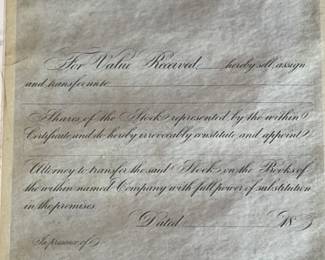 For Value Received hereby sell, assign
and transfer unto
Shares of the Stock represented by the within
Certificate and do hereby irrevocably constitute and appoint
Attorney to transfer the said Stock on the Books of
the within named Company with full power of substitution
in the premises.
Dated 18
In presence of